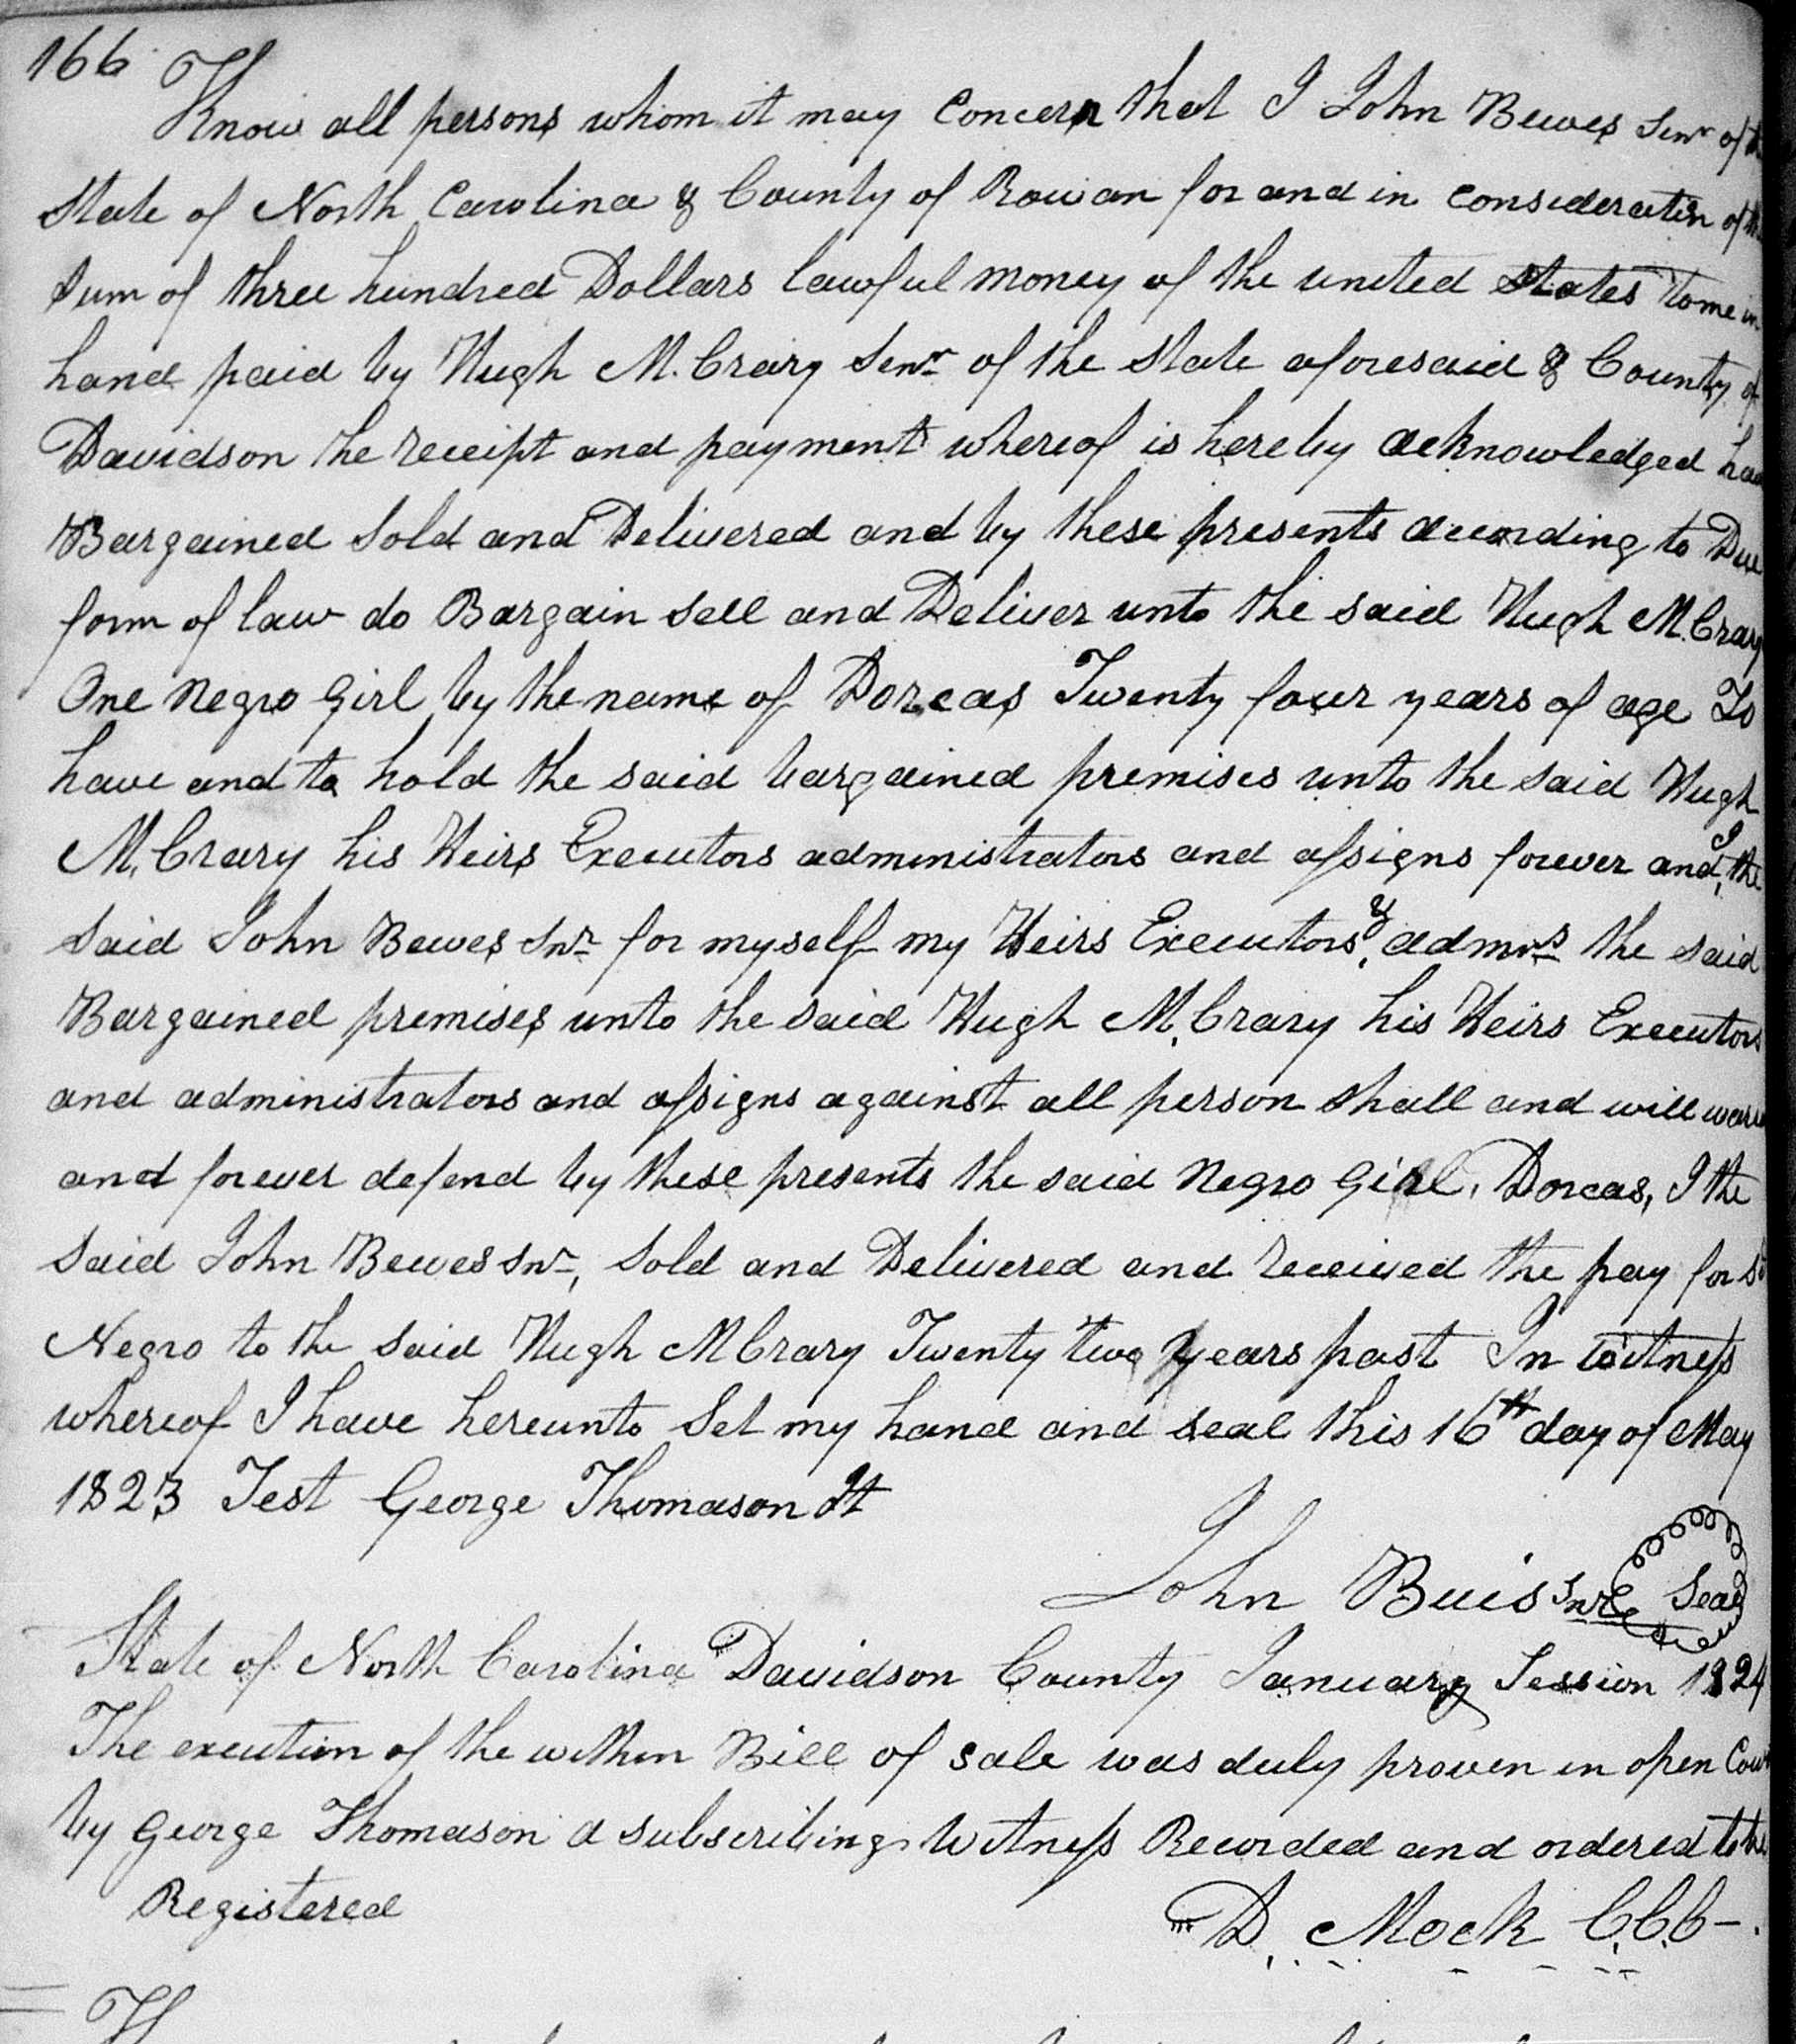 166
Know all persons whom it may Concern that I John Bewes Senr of
State of North Carolina & County of Rowan for and in consideration of
Sum of three hundred Dollars lawful money of the united States to me in
hand paid by Hugh M.Crary Senr of the State aforesaid & County of
Davidson the receipt and payment whereof is hereby acknowledged
Bargained Sold and Delivered and by these presents according to Due
form of law do Bargain Sell and Deliver unto the said Hugh M.Crary
One Negro Girl by the name of Dorcas Twenty four years of age To
have and to hold the said bargained premises unto the said Hugh
M.Crary his Heirs Executors administrators and assigns forever and I the
Said John Bewes Snr for myself my Heirs Executors & admnrs the said
Bargained premises unto the said Hugh M.Crary his Heirs Executors
and administrators and assigns against all person shall and will
and forever defend by these presents the said Negro Girl, Dorcas, I the
Said John Bewes Snr, Sold and Delivered and received the pay for sd
Negro to the said Hugh MCrary Twenty two years past In witness
whereof I have hereunto Set my hand and seal this 16th day of May
1823 Test George Thomason Jt
John Buis Snr Seal
State of North Carolina Davidson County January Session 1824
The excution of the within Bill of sale was duly proven in open Court
by George Thomason a subscribing witness Recorded and ordered to be
Registered
D. Mock C.C.C